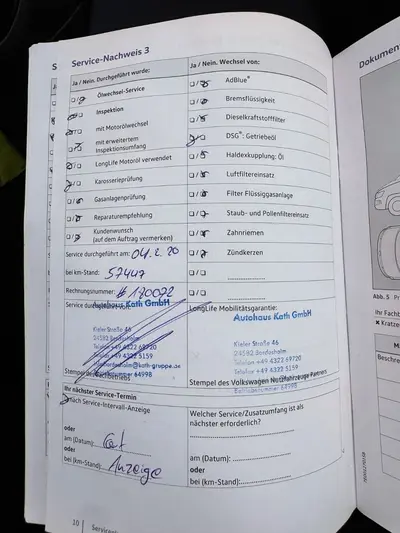 Service-Nachweis 3
Ja / Nein. Durchgeführt wurde:
Ölwechsel-Service
Inspektion
mit Motorölwechsel
mit erweitertem
Inspektionsumfang
LongLife Motoröl verwendet
Karosserieprüfung
Gasanlagenprüfung
Reparaturempfehlung
Kundenwunsch
(auf dem Auftrag vermerken)
Service durchgeführt am: 04.2.20
bei km-Stand: 57447
Rechnungsnummer: # 170072
Autohaus Kath GmbH
Kieler Straße 46
24582 Bordesholm
Telefon +49 4322 69720
Telefax +49 4322 5159
bordesholm@kath-gruppe.de
Betriebsnummer 64998
Ihr nächster Service-Termin
nach Service-Intervall-Anzeige
oder
am (Datum):
oder
bei (km-Stand): Anzeige
Ja / Nein. Wechsel von:
AdBlue®
Bremsflüssigkeit
Dieselkraftstofffilter
DSG®: Getriebeöl
Haldexkupplung: Öl
Luftfiltereinsatz
Filter Flüssiggasanlage
Staub- und Pollenfiltereinsatz
Zahnriemen
Zündkerzen
LongLife Mobilitätsgarantie:
Autohaus Kath GmbH
Kieler Straße 46
24582 Bordesholm
Telefon +49 4322 69720
Telefax +49 4322 5159
Stempel des Volkswagen Nutzfahrzeuge Partners
Betriebsnummer 64998
Welcher Service/Zusatzumfang ist als
nächster erforderlich?
am (Datum):
oder
bei (km-Stand):
10
Dokument
Abb. 5